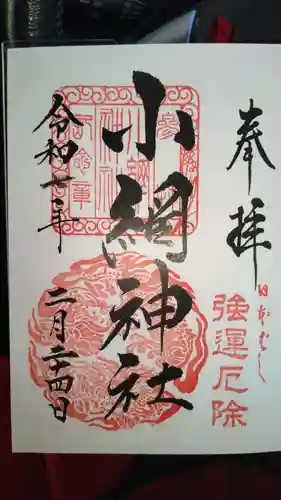 奉拝
日本ばし
強運厄除
小網神社
令和二年
二月二十四日